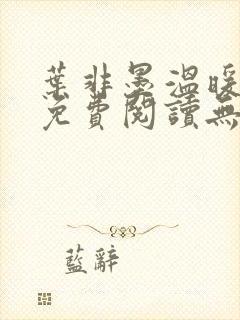 葉非墨溫暖
免費閱讀無
藍辭